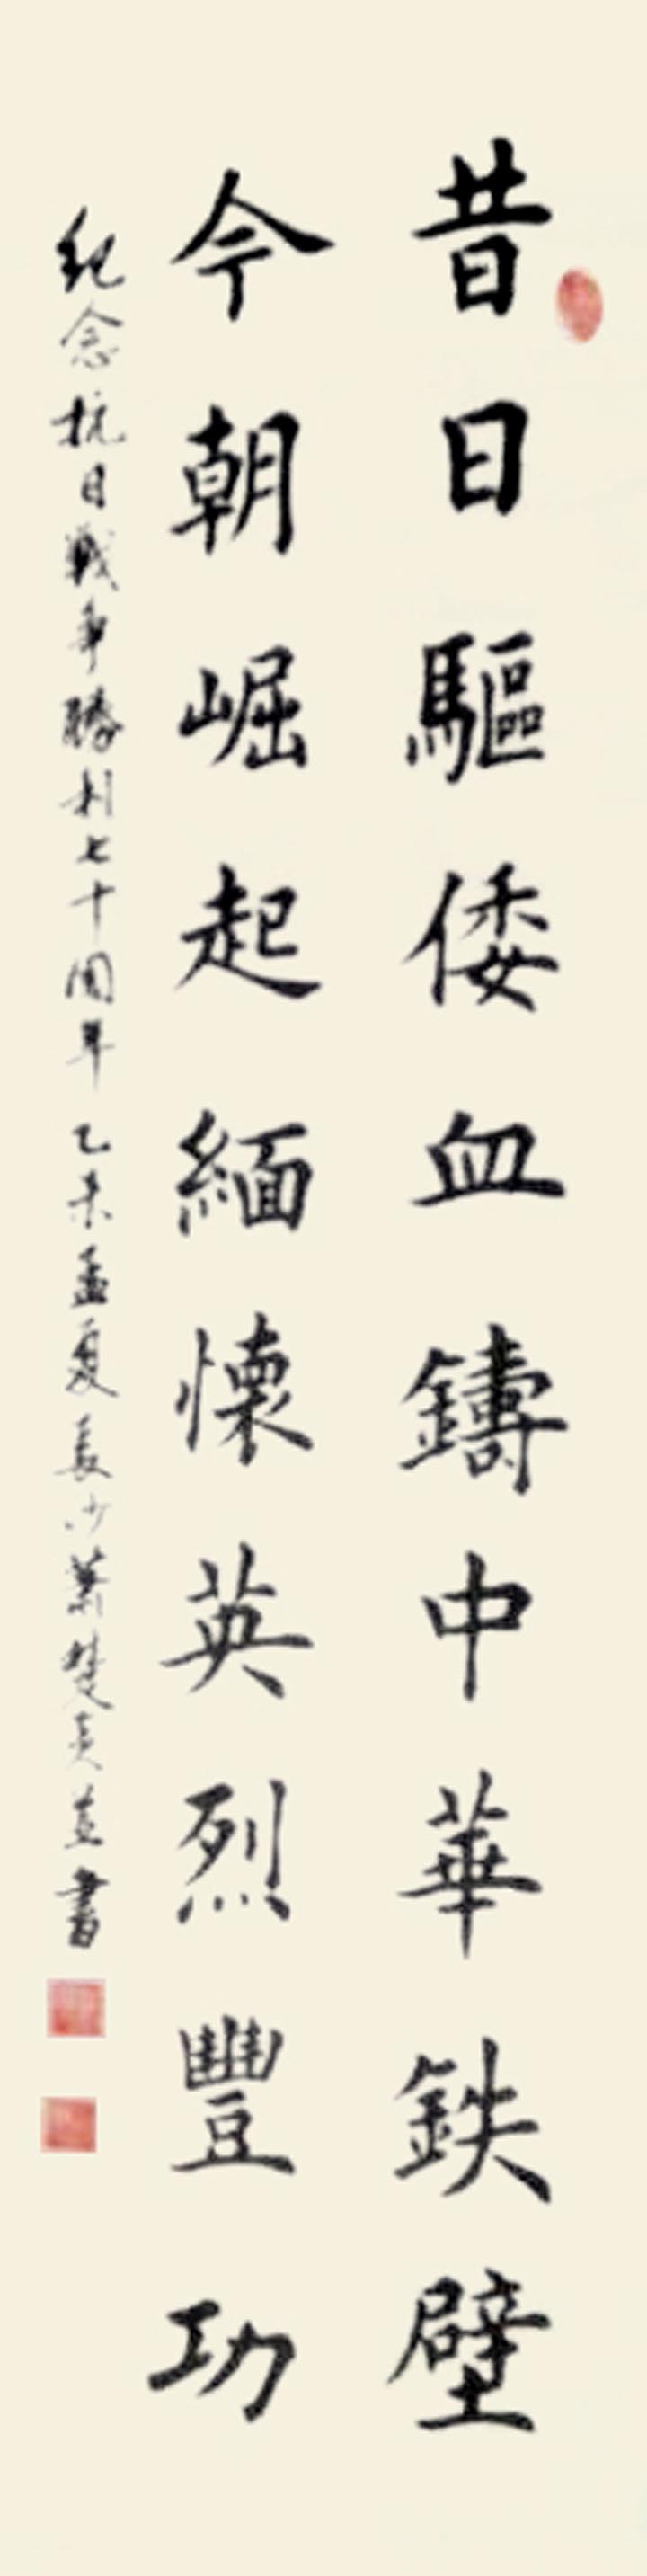 昔日驅倭血鑄中華鉄壁
今朝崛起緬懷英烈豐功
紀念抗日戰爭勝利七十周年乙未孟夏長沙萧楚英並書